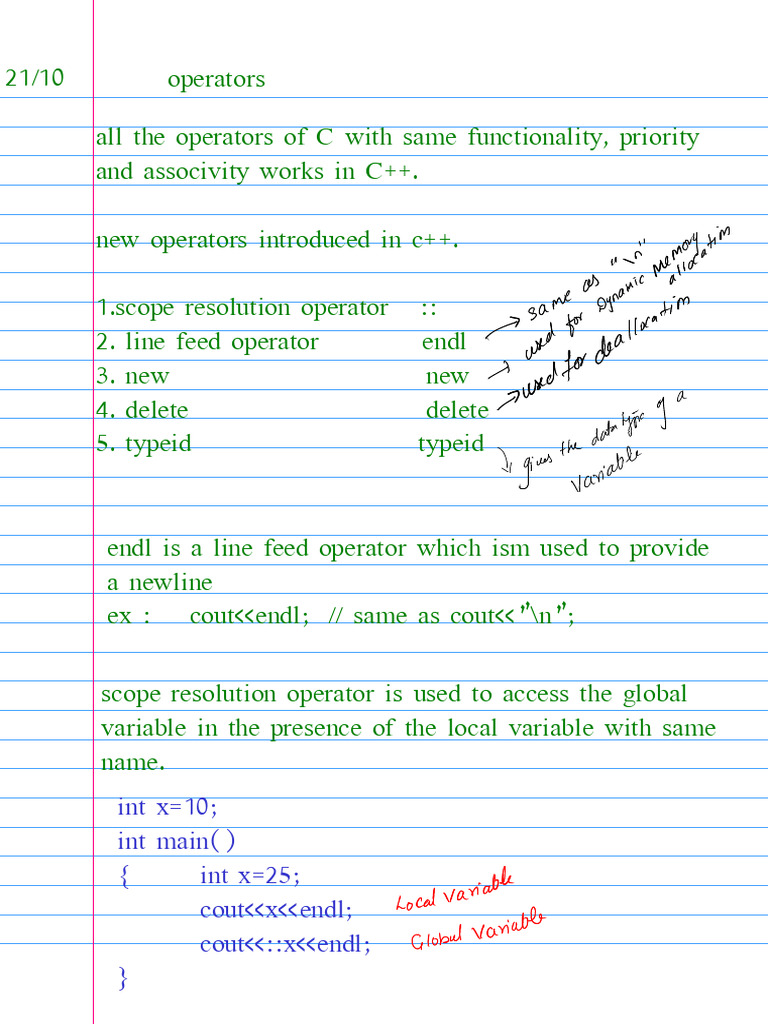 21/10 operators
all the operators of C with same functionality, priority
and associvity works in C++.
new operators introduced in c++.
1.scope resolution operator ::
2. line feed operator endl
same as "\n"
3. new new
used for Dynamic Memory
allocation
4. delete delete
used for deallocation
5. typeid typeid
gives the data type of a
Variable
endl is a line feed operator which ism used to provide
a newline
ex : cout<<endl; // same as cout<<"\n";
scope resolution operator is used to access the global
variable in the presence of the local variable with same
name.
int x=10;
int main()
{ int x=25;
cout<<x<<endl; Local Variable
cout<<::x<<endl; Global Variable
}